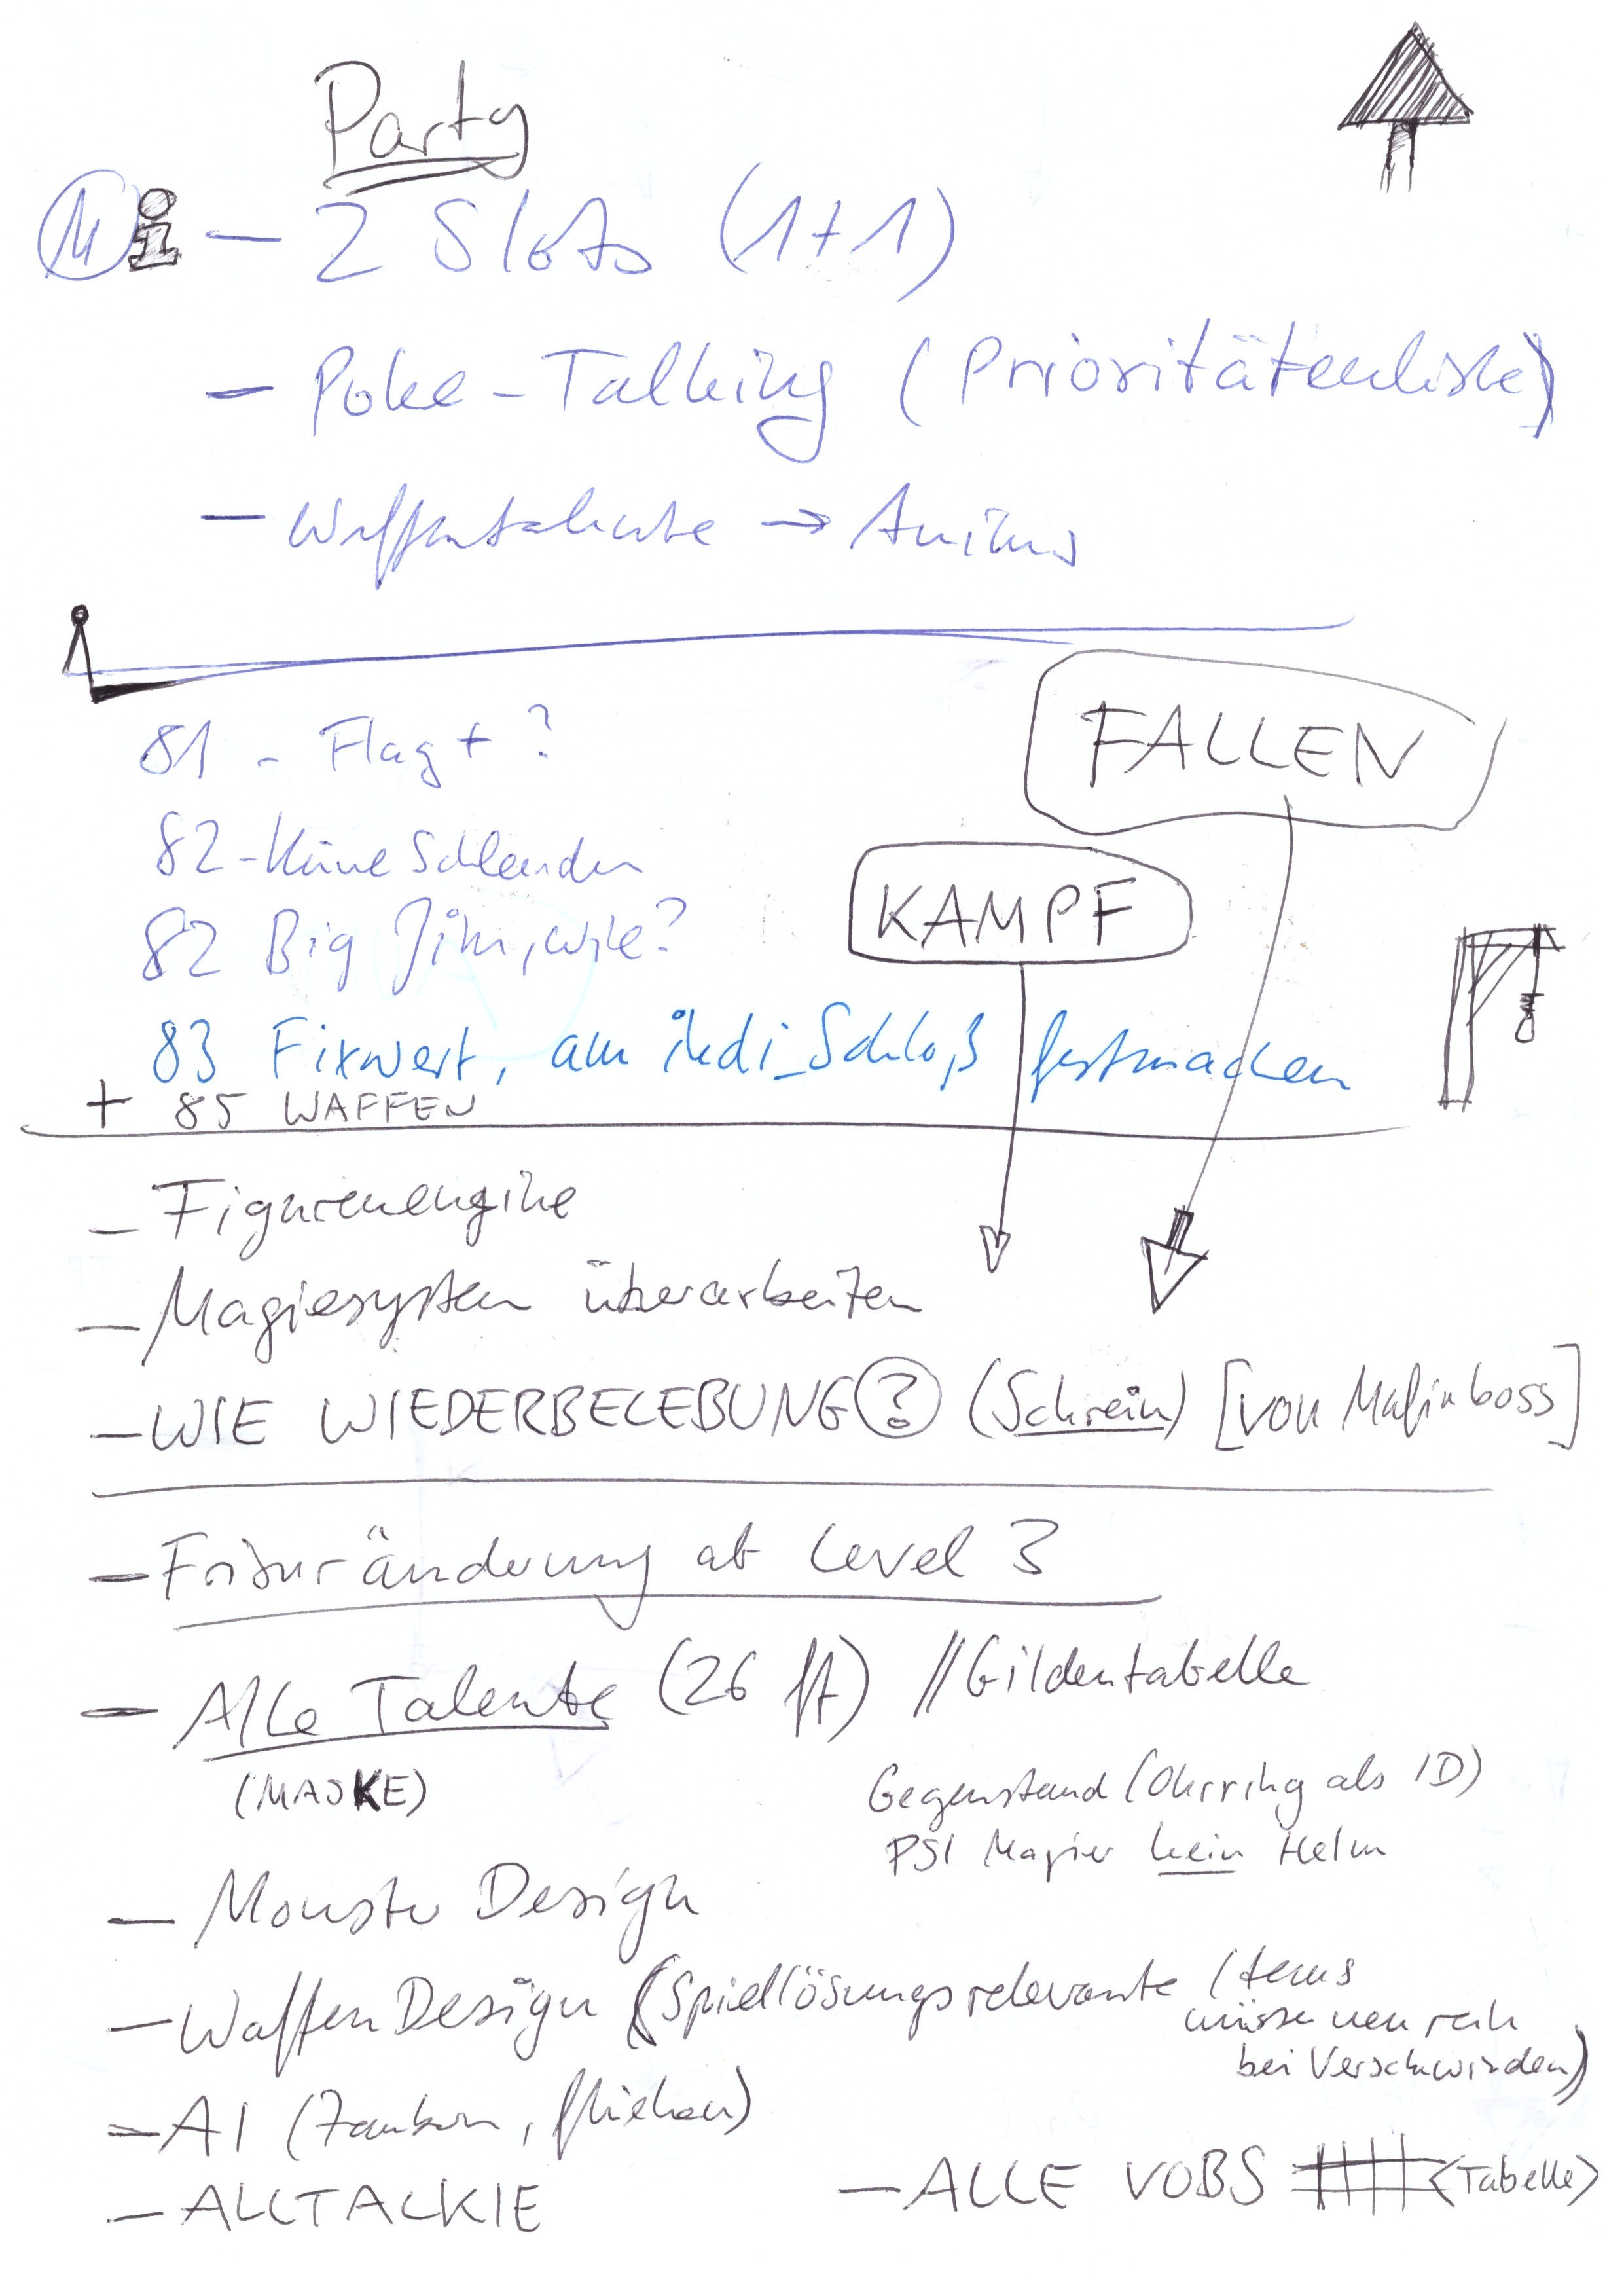 Party
M i – 2 Slots (1+1)
– Poke-Talking (Prioritätenliste)
– Waffentalente → Animus
81 – Flag + ?
FALLEN
82 – Keine Schleuder
KAMPF
82 Big Jim, wie?
83 Fixwert, am indi_Schloß festmachen
+ 85 WAFFEN
– Figurenengine
– Magiesystem überarbeiten
– WIE WIEDERBELEBUNG ? (Schrein) [von Mafiaboss]
– Frisuränderung ab Level 3
– Alle Talente (26 ft) // Gildentabelle
(MASKE)
Gegenstand (Ohrring als ID)
PSI Magier kein Helm
– Monster Design
– Waffen Design (Spiellösungsrelevante Items
müssen neu rein
bei Verschwinden)
– AI (Zaubern, fliehen)
– ALLTALKIE
– ALLE VOBS <Tabelle>